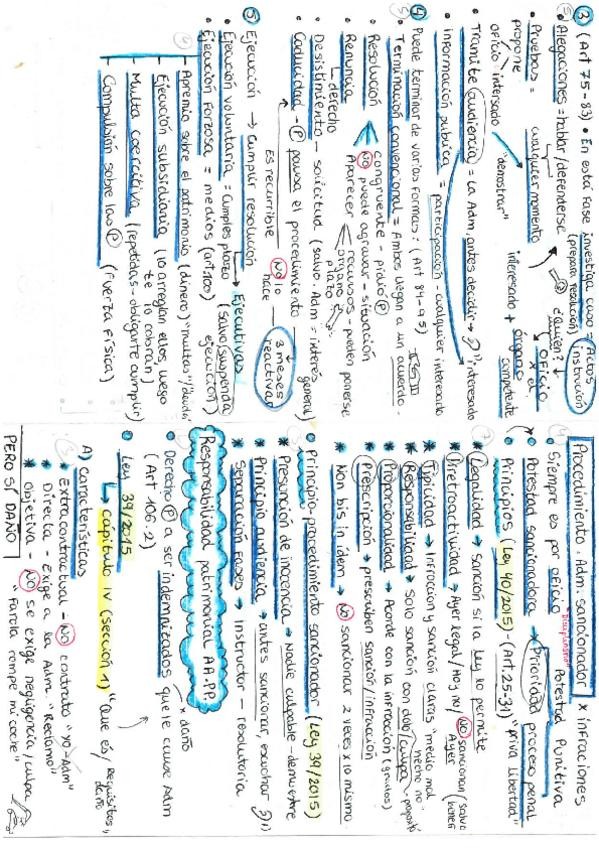 ③ (Art 75-83) • En esta fase investiga caso = Actos instrucción
(prepara resolución)
• Alegaciones = hablar/defenderse
¿quién? OFICIO x el órgano competente
• Pruebas = cualquier momento
propone
oficio interesado "demostrar" interesado +
• Trámite audiencia = La Adm, antes decidir → "interesado
• Información pública = participación - cualquier interesado
④ Puede terminar de varias formas: (Art 84-95)
• Terminación convencional = Ambos llegan a un acuerdo.
• Resolución congruente - pidió Ⓟ
NO puede agravar - situación
Aparecer recursos - pueden ponerse
órgano
plazo
• Renuncia
↳ derecho
• Desistimiento - solicitud (salvo Adm = interés general)
• Caducidad - Ⓟ pausa el procedimiento
Es recurrible NO lo hace 3 meses reactivar
⑤ Ejecución → Cumplir resolución → Ejecutivas
• Ejecución voluntaria = cumples plazo (salvo/suspenda ejecución)
• Ejecución forzosa = medios (art 100)
- Apremio sobre el patrimonio (dinero) "multas"/deudas
- Ejecución subsidiaria (lo arreglan ellos, luego
te lo cobran)
- Multa coercitiva (repetidas - obligarte cumplir)
- Compulsión sobre las Ⓟ (fuerza física)
Procedimiento. Adm. sancionador x infracciones
• Siempre es por oficio
Disciplinaria Potestad Punitiva
• Potestad sancionadora → Prioridad proceso penal
• Principios (Ley 40/2015) - (Art. 25-31) "priva libertad"
* Legalidad → sanción si la ley lo permite
* Irretroactividad → Ayer legal / Hoy no / NO sancionan (salvo
Ayer benefi
* Tipicidad → Infracción y sanción claras "medio mal
hecho no"
* Responsabilidad → Solo sanción con dolo/culpa - propósito
* Proporcionalidad → Acorde con la infracción (grados)
* Prescripción → prescriben sanción/infracción
* Non bis in idem → NO sancionar 2 veces x lo mismo
• Principio procedimiento sancionador (Ley 39/2015)
* Presunción de inocencia → Nadie culpable - demuestre
* Principio audiencia → antes sancionar, escuchar
* Separación fases → Instructor - resolutoria
Responsabilidad patrimonial AA.PP.
* daño
• Derecho Ⓟ a ser indemnizados que le cause Adm
(Art 106.2)
• Ley 39/2015
↳ capítulo IV (sección 1) "que es/ requisitos"
daño
A) Características
* Extracontractual - NO contrato "yo-Adm"
* Directa - Exige a la Adm. "Reclamo"
* Objetiva - NO se exige negligencia/culpa
PERO SÍ DAÑO "Farola rompe mi coche"